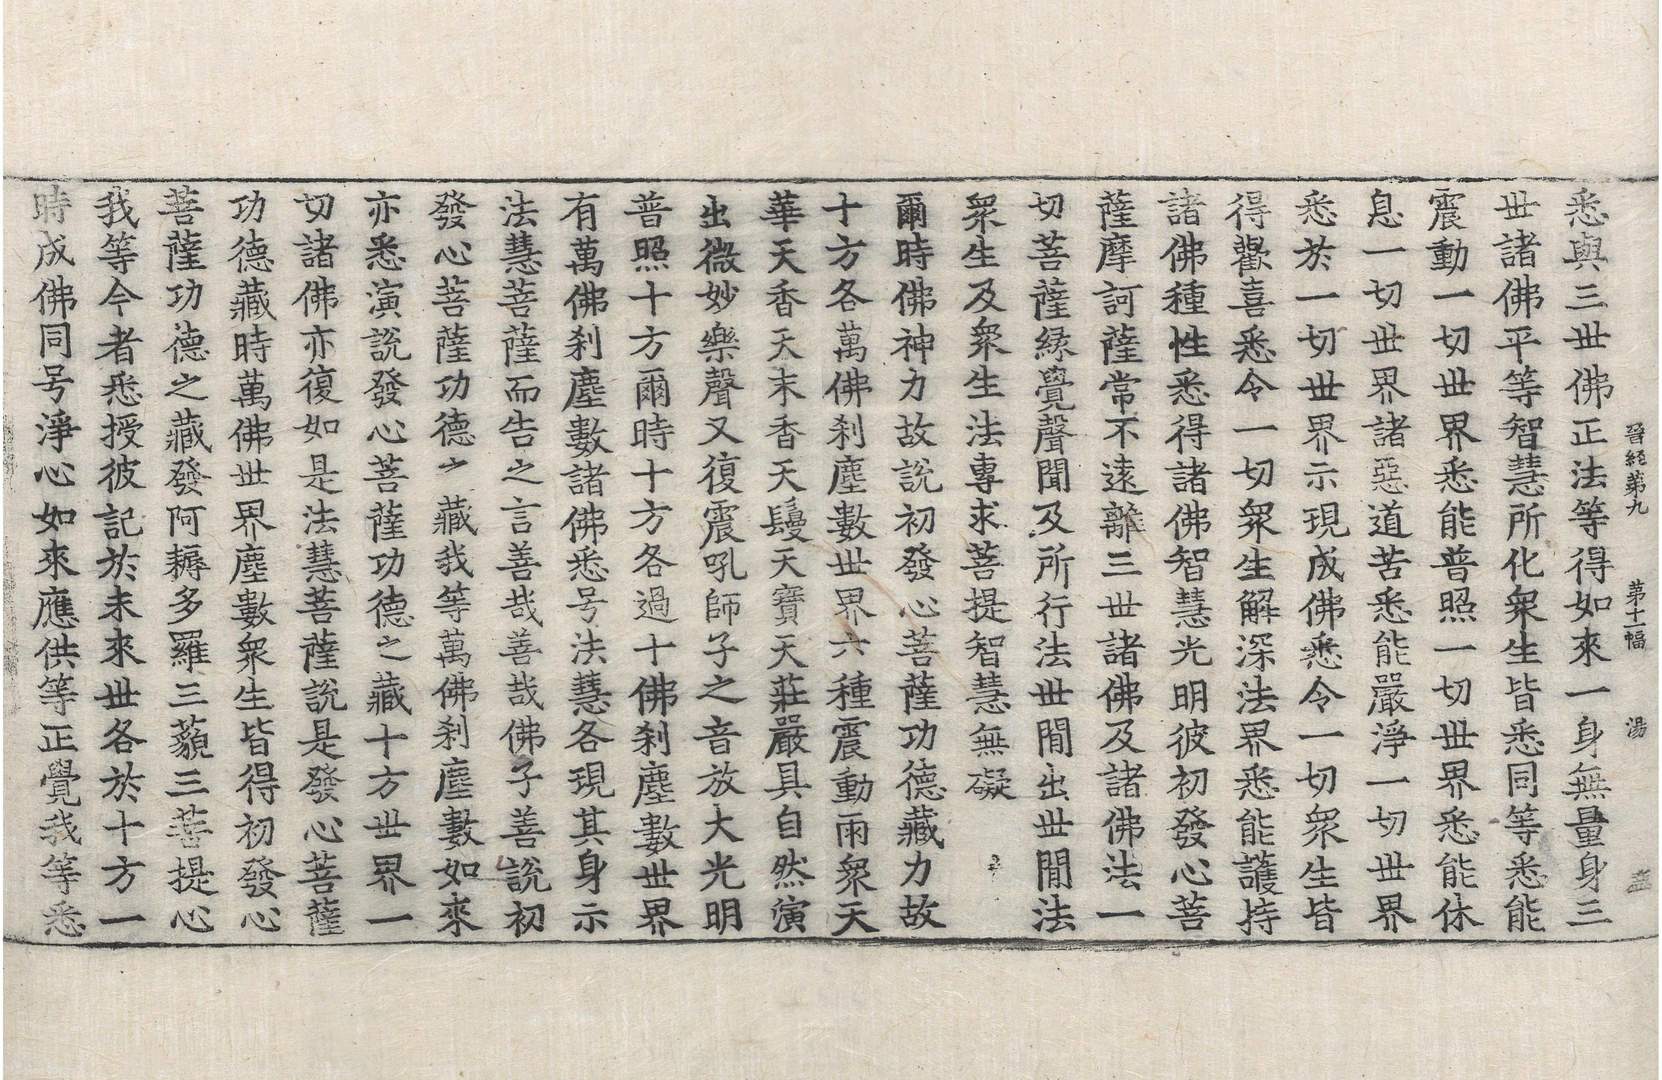 晉經第九　第十一幅　湯
悉與三世佛正法等得如來一身無量身三
世諸佛平等智慧所化衆生皆悉同等悉能
震動一切世界悉能普照一切世界悉能休
息一切世界諸惡道苦悉能嚴淨一切世界
悉於一切世界示現成佛悉令一切衆生皆
得歡喜悉令一切衆生解深法界悉能護持
諸佛種性悉得諸佛智慧光明彼初發心菩
薩摩訶薩常不遠離三世諸佛及諸佛法一
切菩薩緣覺聲聞及所行法世閒出世閒法
衆生及衆生法專求菩提智慧無礙
爾時佛神力故說初發心菩薩功德藏力故
十方各萬佛刹塵數世界六種震動雨衆天
華天香天末香天鬘天寶天莊嚴具自然演
出微妙樂聲又復震吼師子之音放大光明
普照十方爾時十方各過十佛刹塵數世界
有萬佛刹塵數諸佛悉号法慧各現其身示
法慧菩薩而告之言善哉善哉佛子善說初
發心菩薩功德之藏我等萬佛刹塵數如來
亦悉演說發心菩薩功德之藏十方世界一
切諸佛亦復如是法慧菩薩說是發心菩薩
功德藏時萬佛世界塵數衆生皆得初發心
菩薩功德之藏發阿耨多羅三藐三菩提心
我等今者悉授彼記於未來世各於十方一
時成佛同号淨心如來應供等正覺我等悉